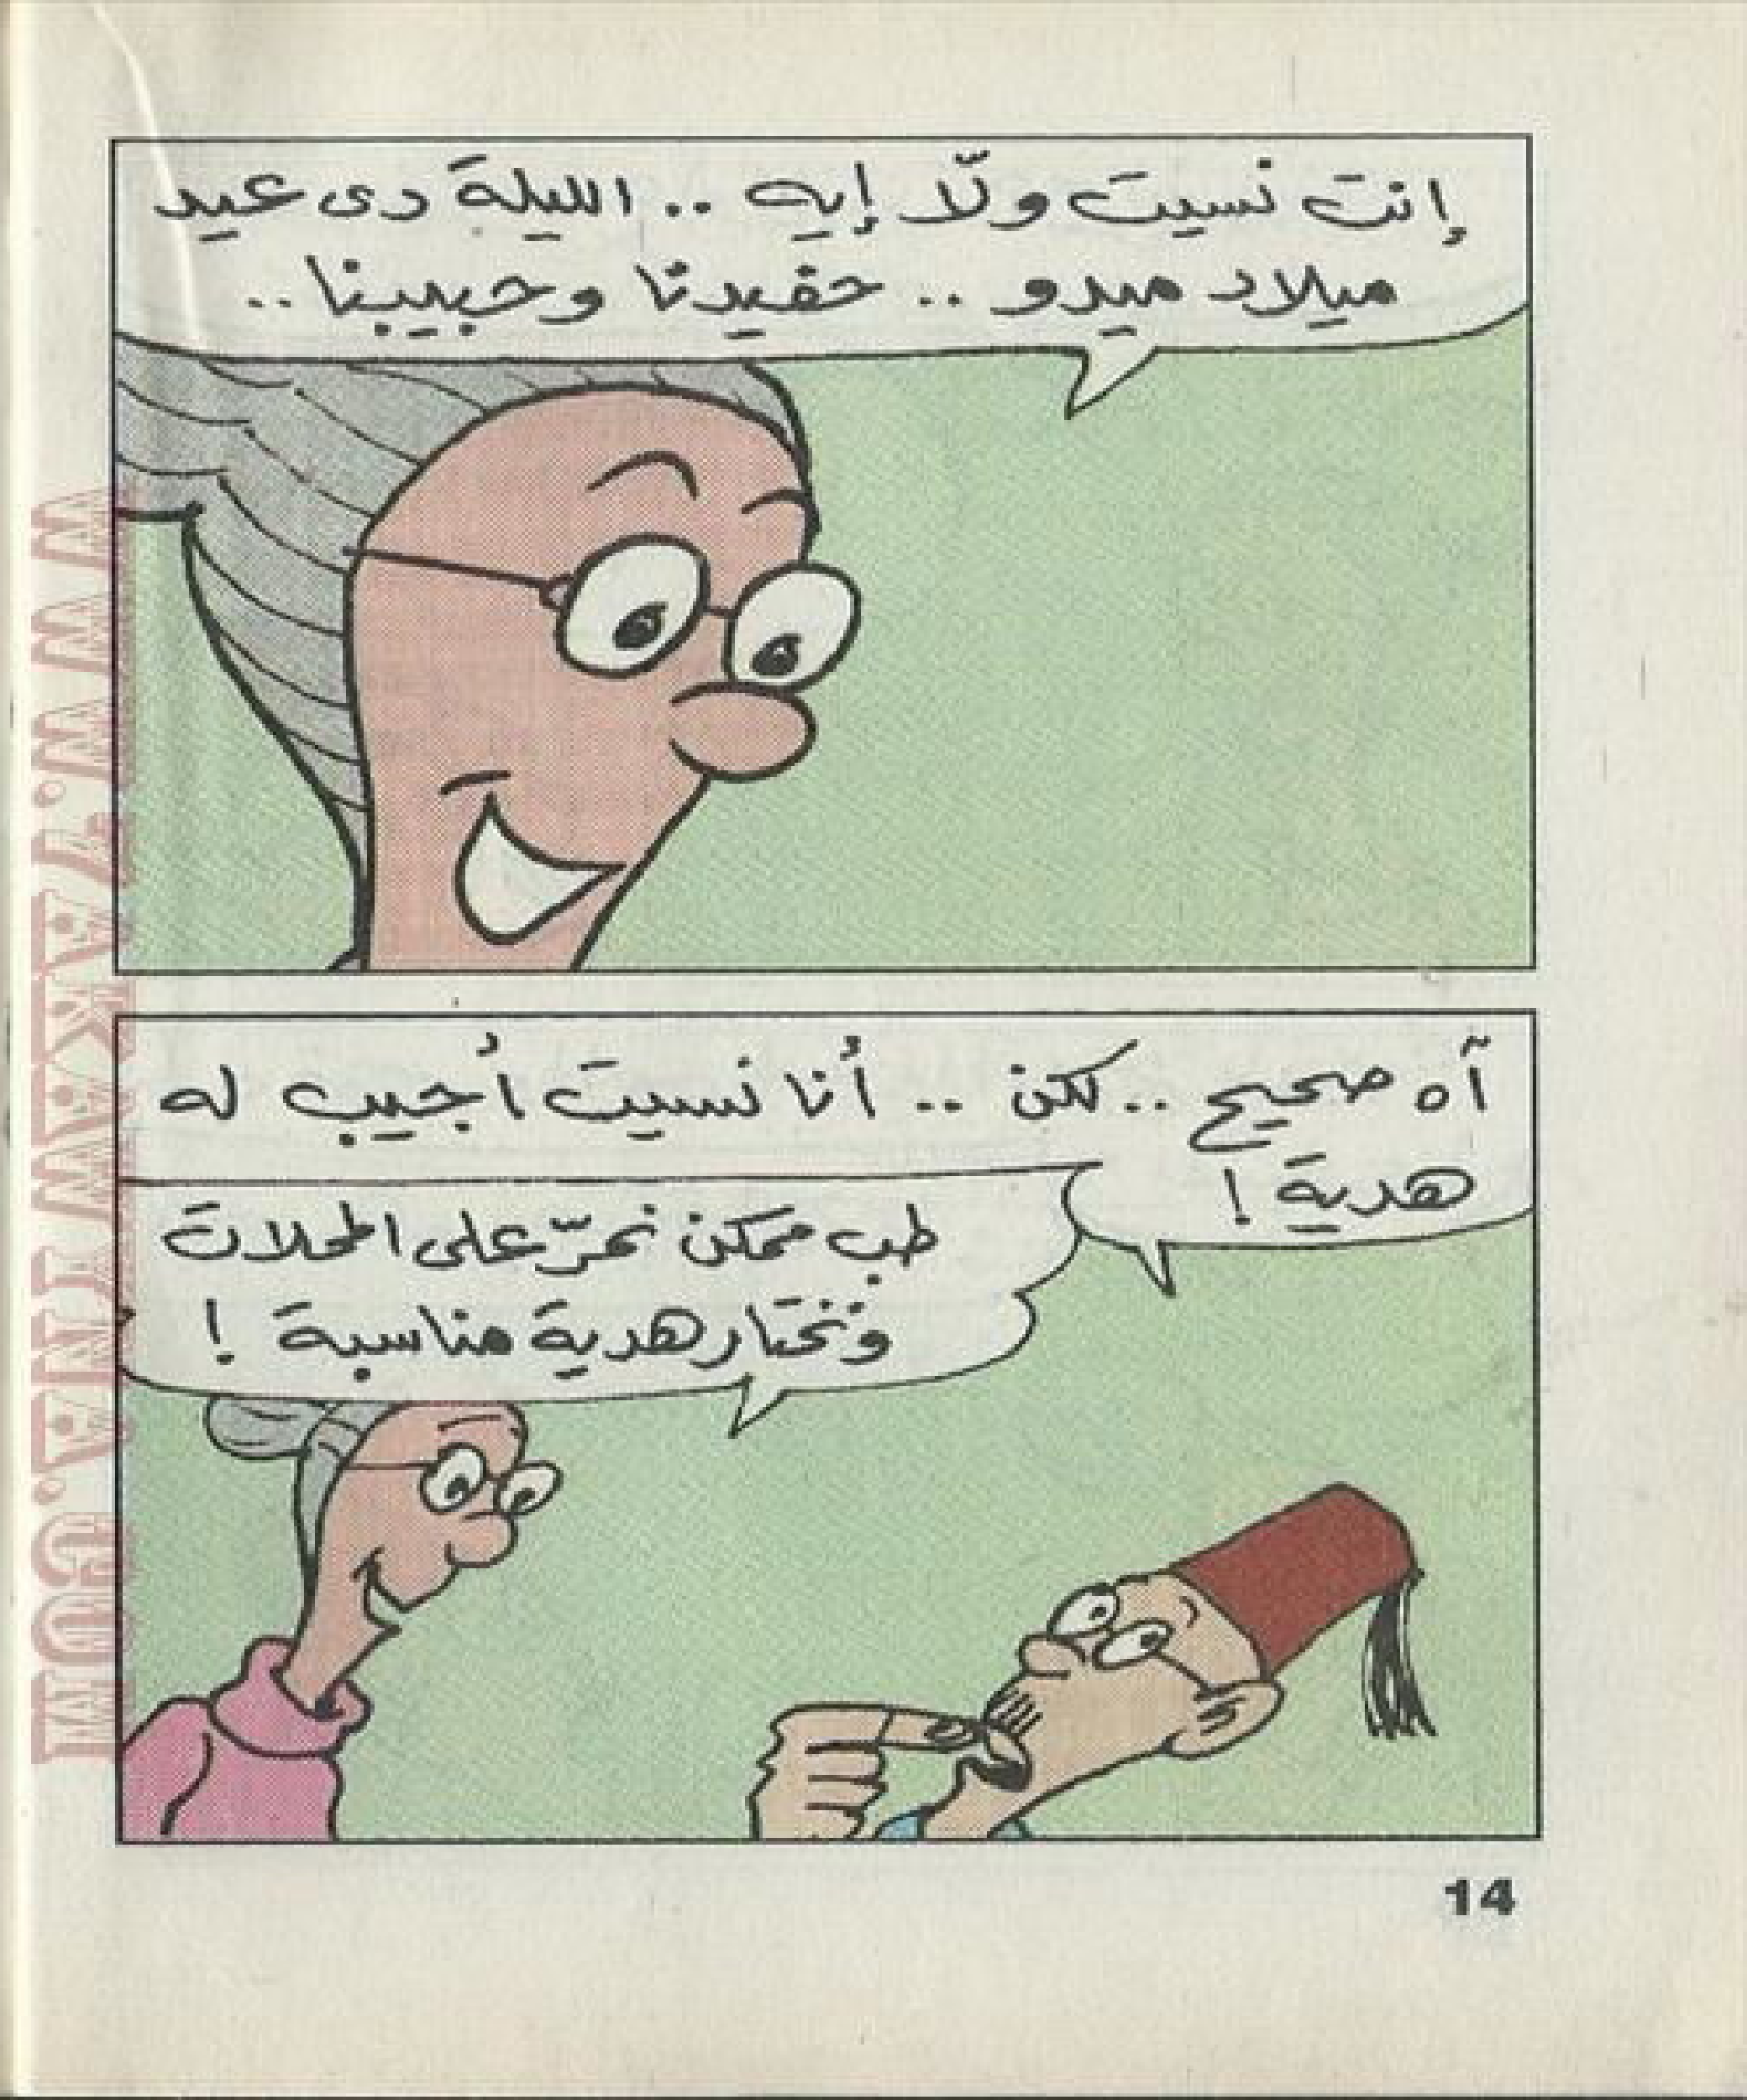 إنت نسيت ولّا إيه .. الليلة دى عيد
ميلاد ميدو .. حفيدنا وحبيبنا ..
آه صحيح .. لكن .. أنا نسيت أجيب له
هدية !
طب ممكن نمرّ على المحلات
ونختار هدية مناسبة !
14
WWW.7AKAWYINA.COM